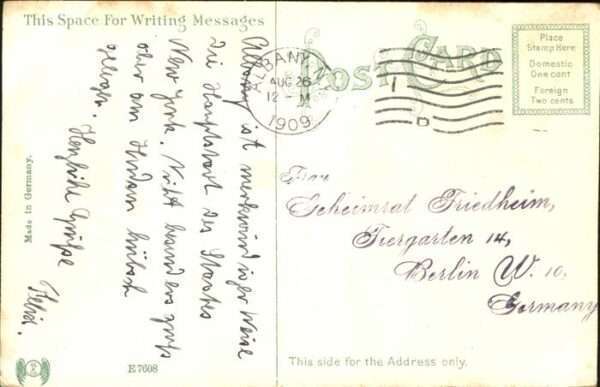 This Space For Writing Messages
Albany ist merkwürdiger Weise
Die Hauptstadt des Staates
New York. Nicht besonders groß
aber am Hudson hübsch
gelegen. Herzliche Grüße
Felix.
Made in Germany.
E 7608
POST CARD
ALBANY N.Y.
AUG 26
12 - M
1909
I
D
Place
Stamp Here
Domestic
One cent
Foreign
Two cents
Frau
Geheimrat Friedheim,
Tiergarten 14,
Berlin W. 10,
Germany
This side for the Address only.